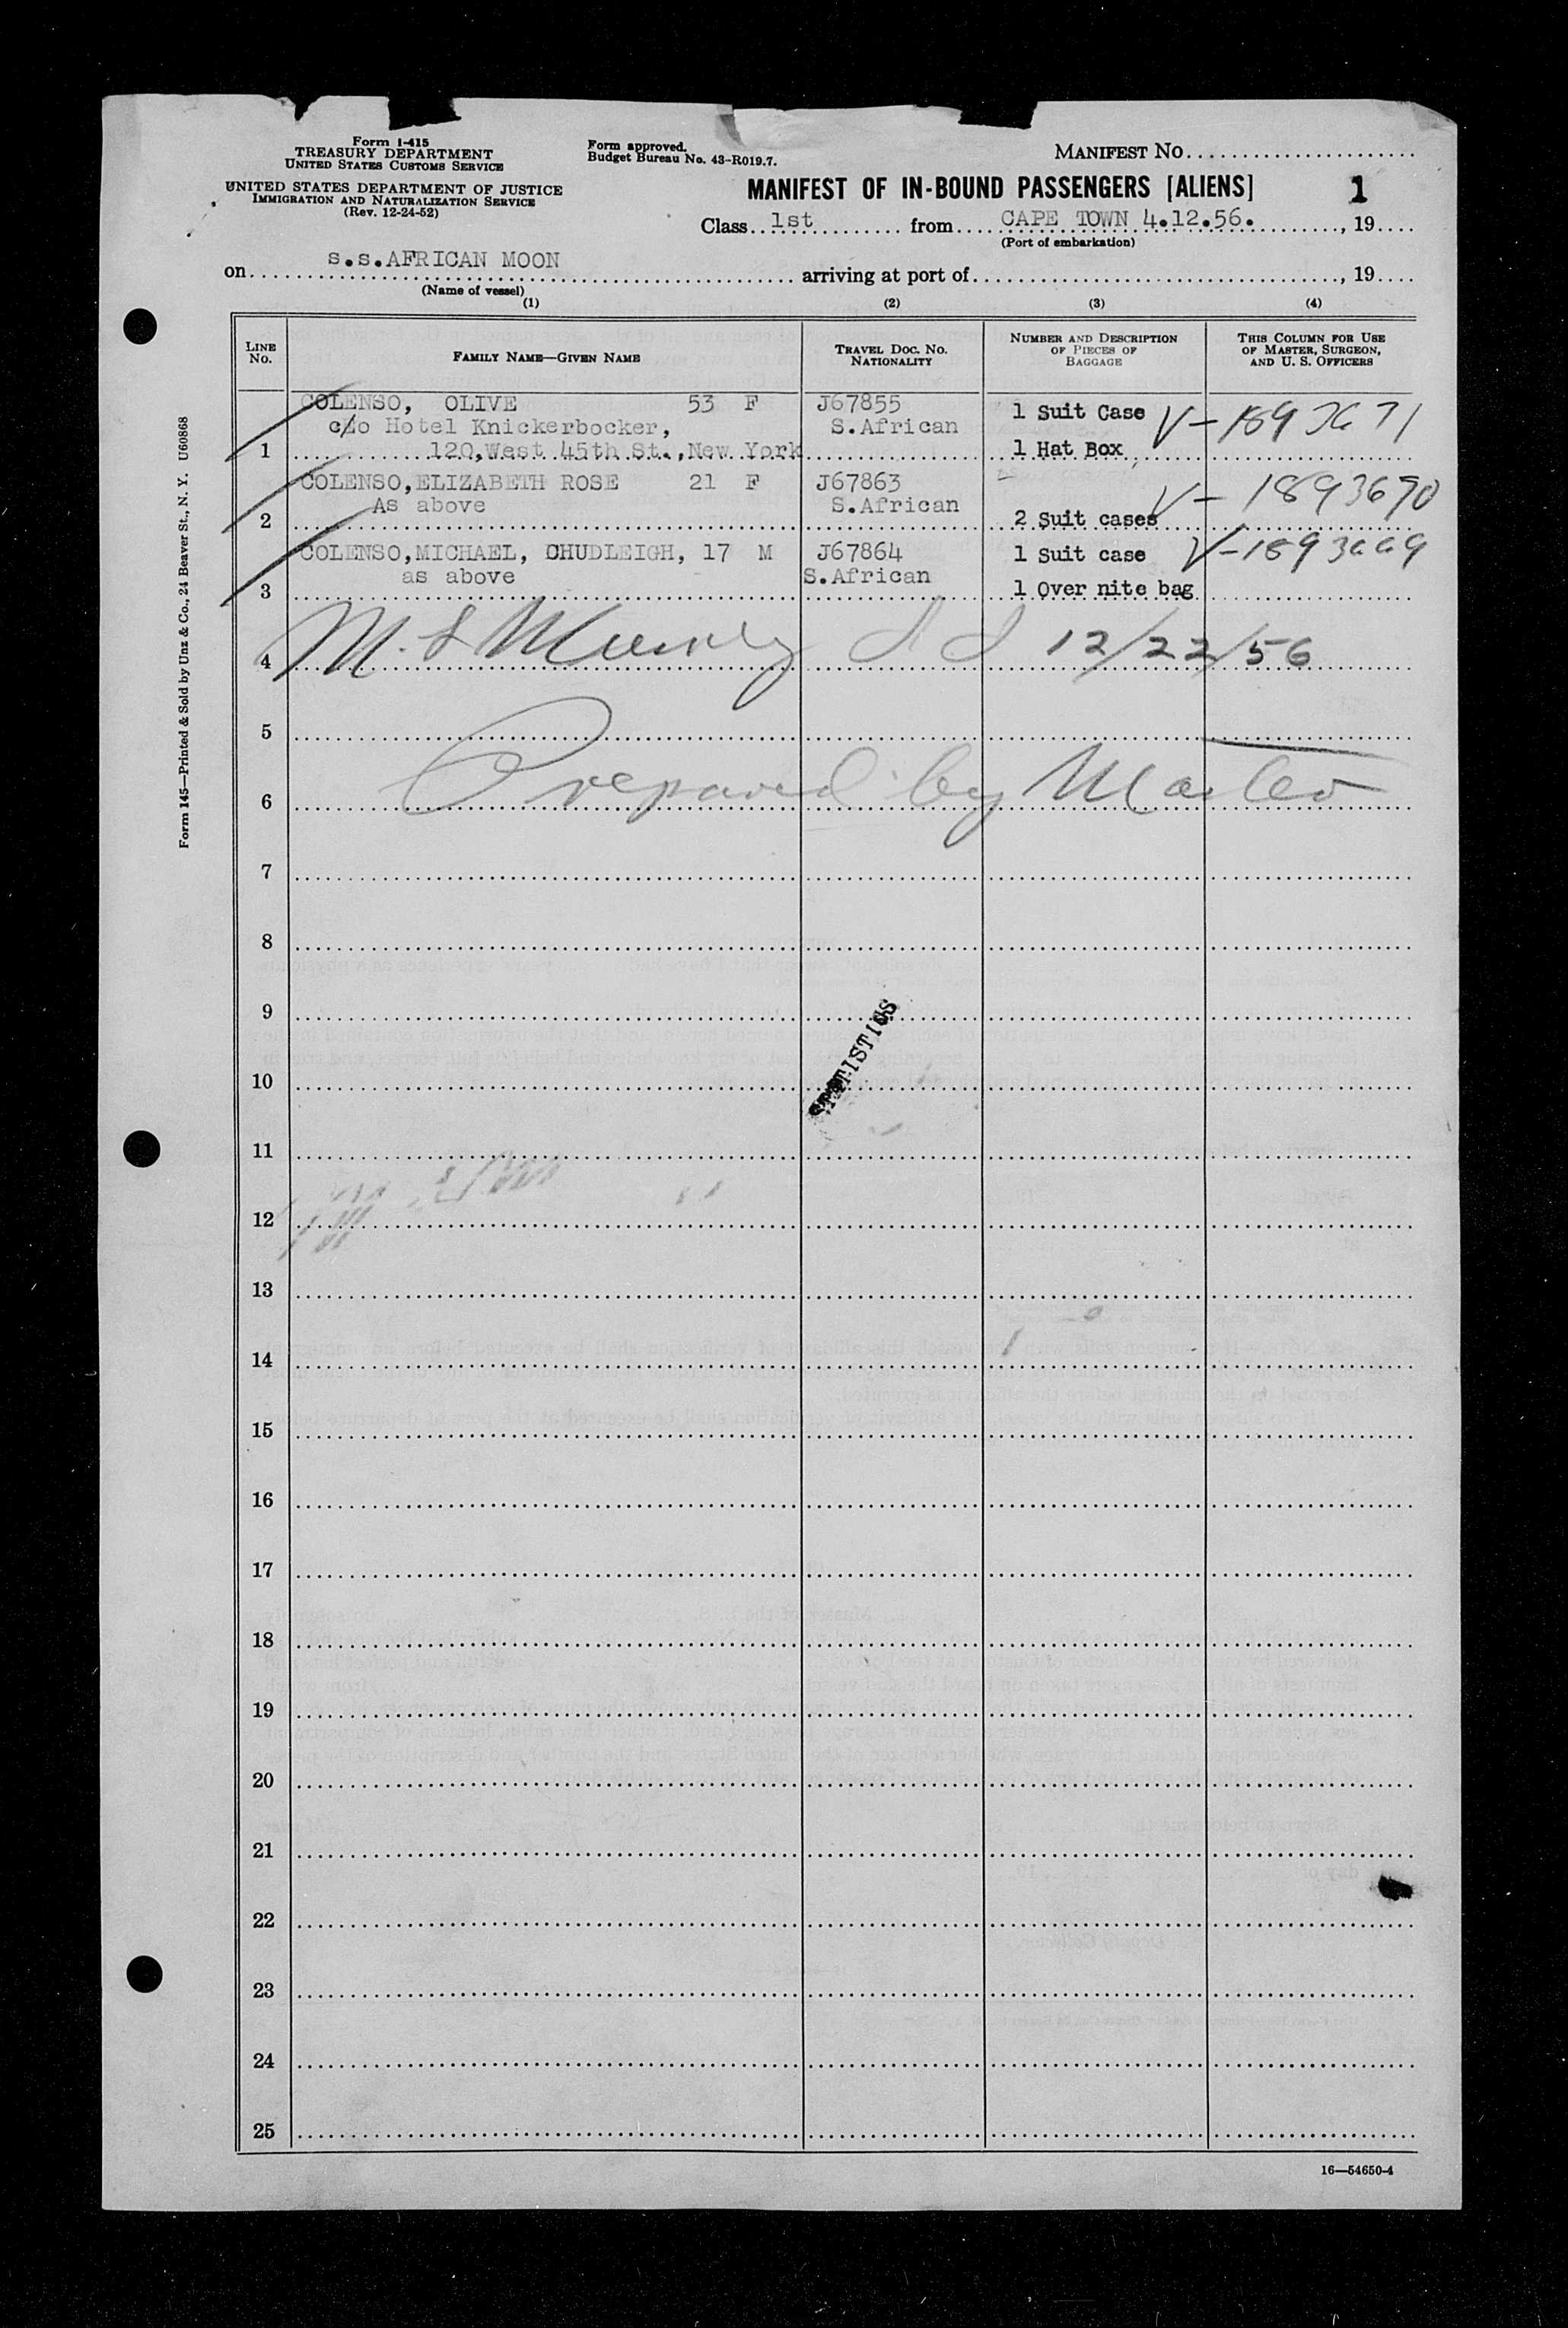 Form I-415
TREASURY DEPARTMENT
UNITED STATES CUSTOMS SERVICE
UNITED STATES DEPARTMENT OF JUSTICE
IMMIGRATION AND NATURALIZATION SERVICE
(Rev. 12-24-52)
Form approved.
Budget Bureau No. 43-R019.7.
MANIFEST NO.
MANIFEST OF IN-BOUND PASSENGERS [ALIENS] 1
Class 1st from CAPE TOWN 4.12.56. , 19
(Port of embarkation)
on s.s.AFRICAN MOON arriving at port of , 19
(Name of vessel)
(1) (2) (3) (4)
LINE NO. FAMILY NAME—GIVEN NAME TRAVEL DOC. NO. NATIONALITY NUMBER AND DESCRIPTION OF PIECES OF BAGGAGE THIS COLUMN FOR USE OF MASTER, SURGEON, AND U. S. OFFICERS
COLENSO, OLIVE 53 F J67855 1 Suit Case V-1893671
c/o Hotel Knickerbocker, S.African
1 120,West 45th St.,New York 1 Hat Box
COLENSO,ELIZABETH ROSE 21 F J67863 V-1893670
As above S.African
2 2 Suit cases
COLENSO,MICHAEL, CHUDLEIGH, 17 M J67864 1 Suit case V-1893669
as above S.African
3 1 Over nite bag
4 12/22/56
5
6 Prepared by Master
7
8
9
STATISTICS
10
11
12
13
14
15
16
17
18
19
20
21
22
23
24
25
16—54650-4
Form 145—Printed & Sold by Unz & Co., 24 Beaver St., N. Y. U60868